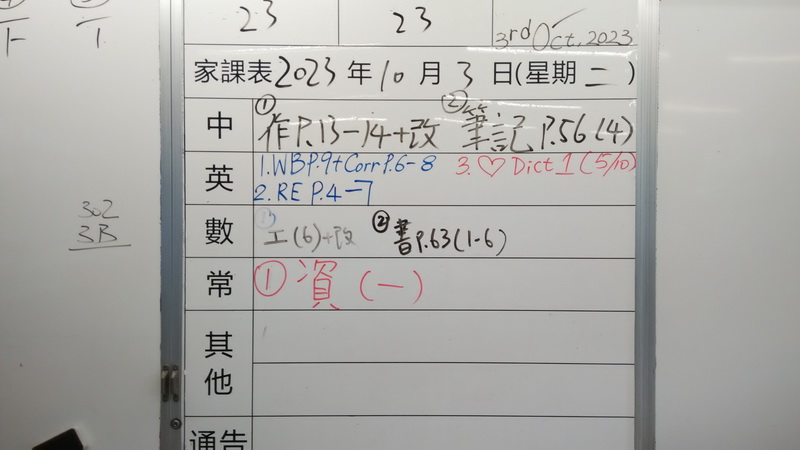 23 23 3rd Oct, 2023
家課表 2023 年 10 月 3 日(星期二)
中 ①作P.13-14+改 ②筆記P.56(4)
英 1.WBP.9+CorrP.6-8 3.♡Dict 1(5/10)
2.RE P.4-7
數 ①工(6)+改 ②書P.63(1-6)
常 ①資(一)
其他
通告
302
3B